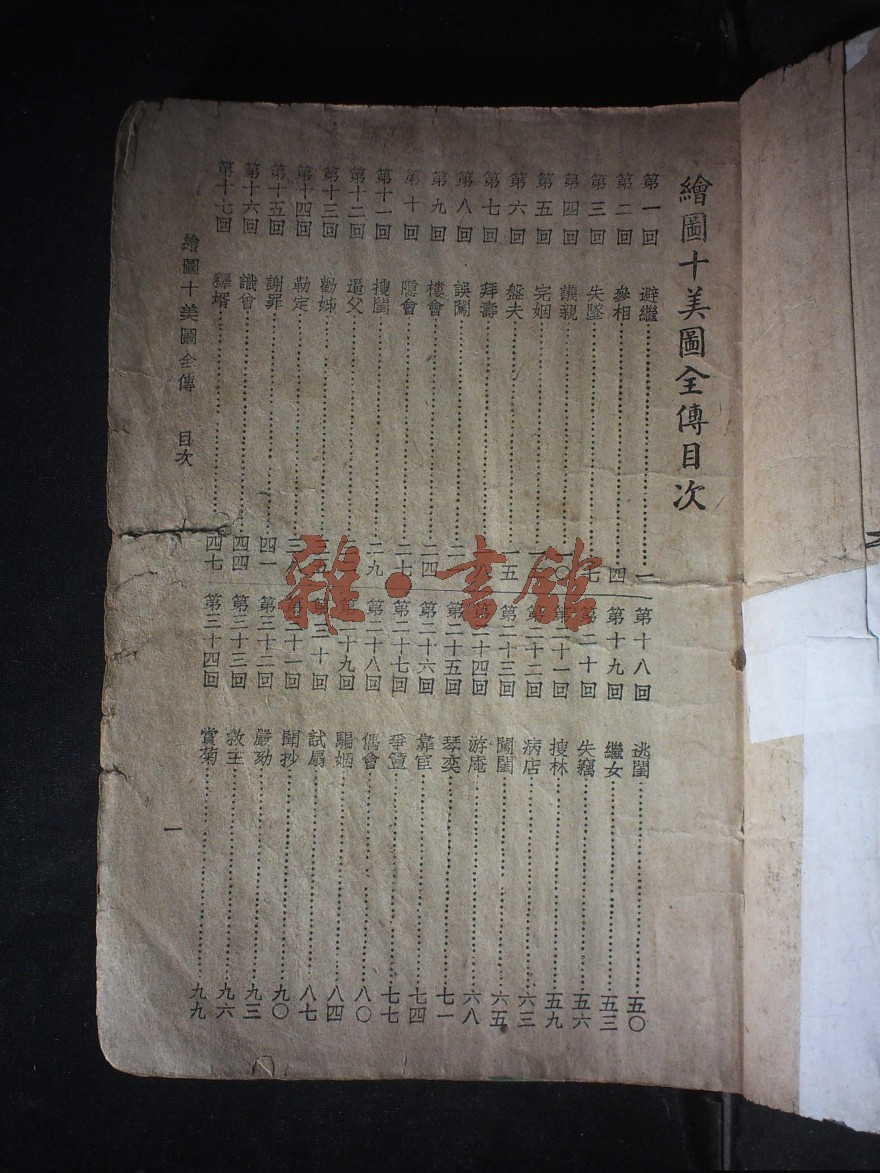 繪圖十美圖全傳目次
第一回 避繼 一
第二回 參相 四
第三回 失墜 七
第四回 議親 一〇
第五回 完姻
第六回 盤夫 一五
第七回 拜壽 一八
第八回 誤闖 二
第九回 樓會 二四
第十回 隱會 二七
第十一回 搜閨 二九
第十二回 逼父
第十三回 勸姊
第十四回 勒定 三八
第十五回 謝罪 四一
第十六回 識會 四四
第十七回 釋婿 四七
第十八回 逃閨 五〇
第十九回 繼女 五三
第二十回 失竊 五六
第二十一回 搜林 五九
第二十二回 病店 六三
第二十三回 鬧閨 六五
第二十四回 游庵 六八
第二十五回 琴奕 七一
第二十六回 靠宦 七四
第二十七回 爭簪 七七
第二十八回 僞會 八〇
第二十九回 騙姻 八四
第三十回 試扇 八七
第三十一回 聞抄 九〇
第三十二回 嚴劾 九三
第三十三回 救主 九六
第三十四回 賞菊 九九
繪圖十美圖全傳 目次 一
雜·書館